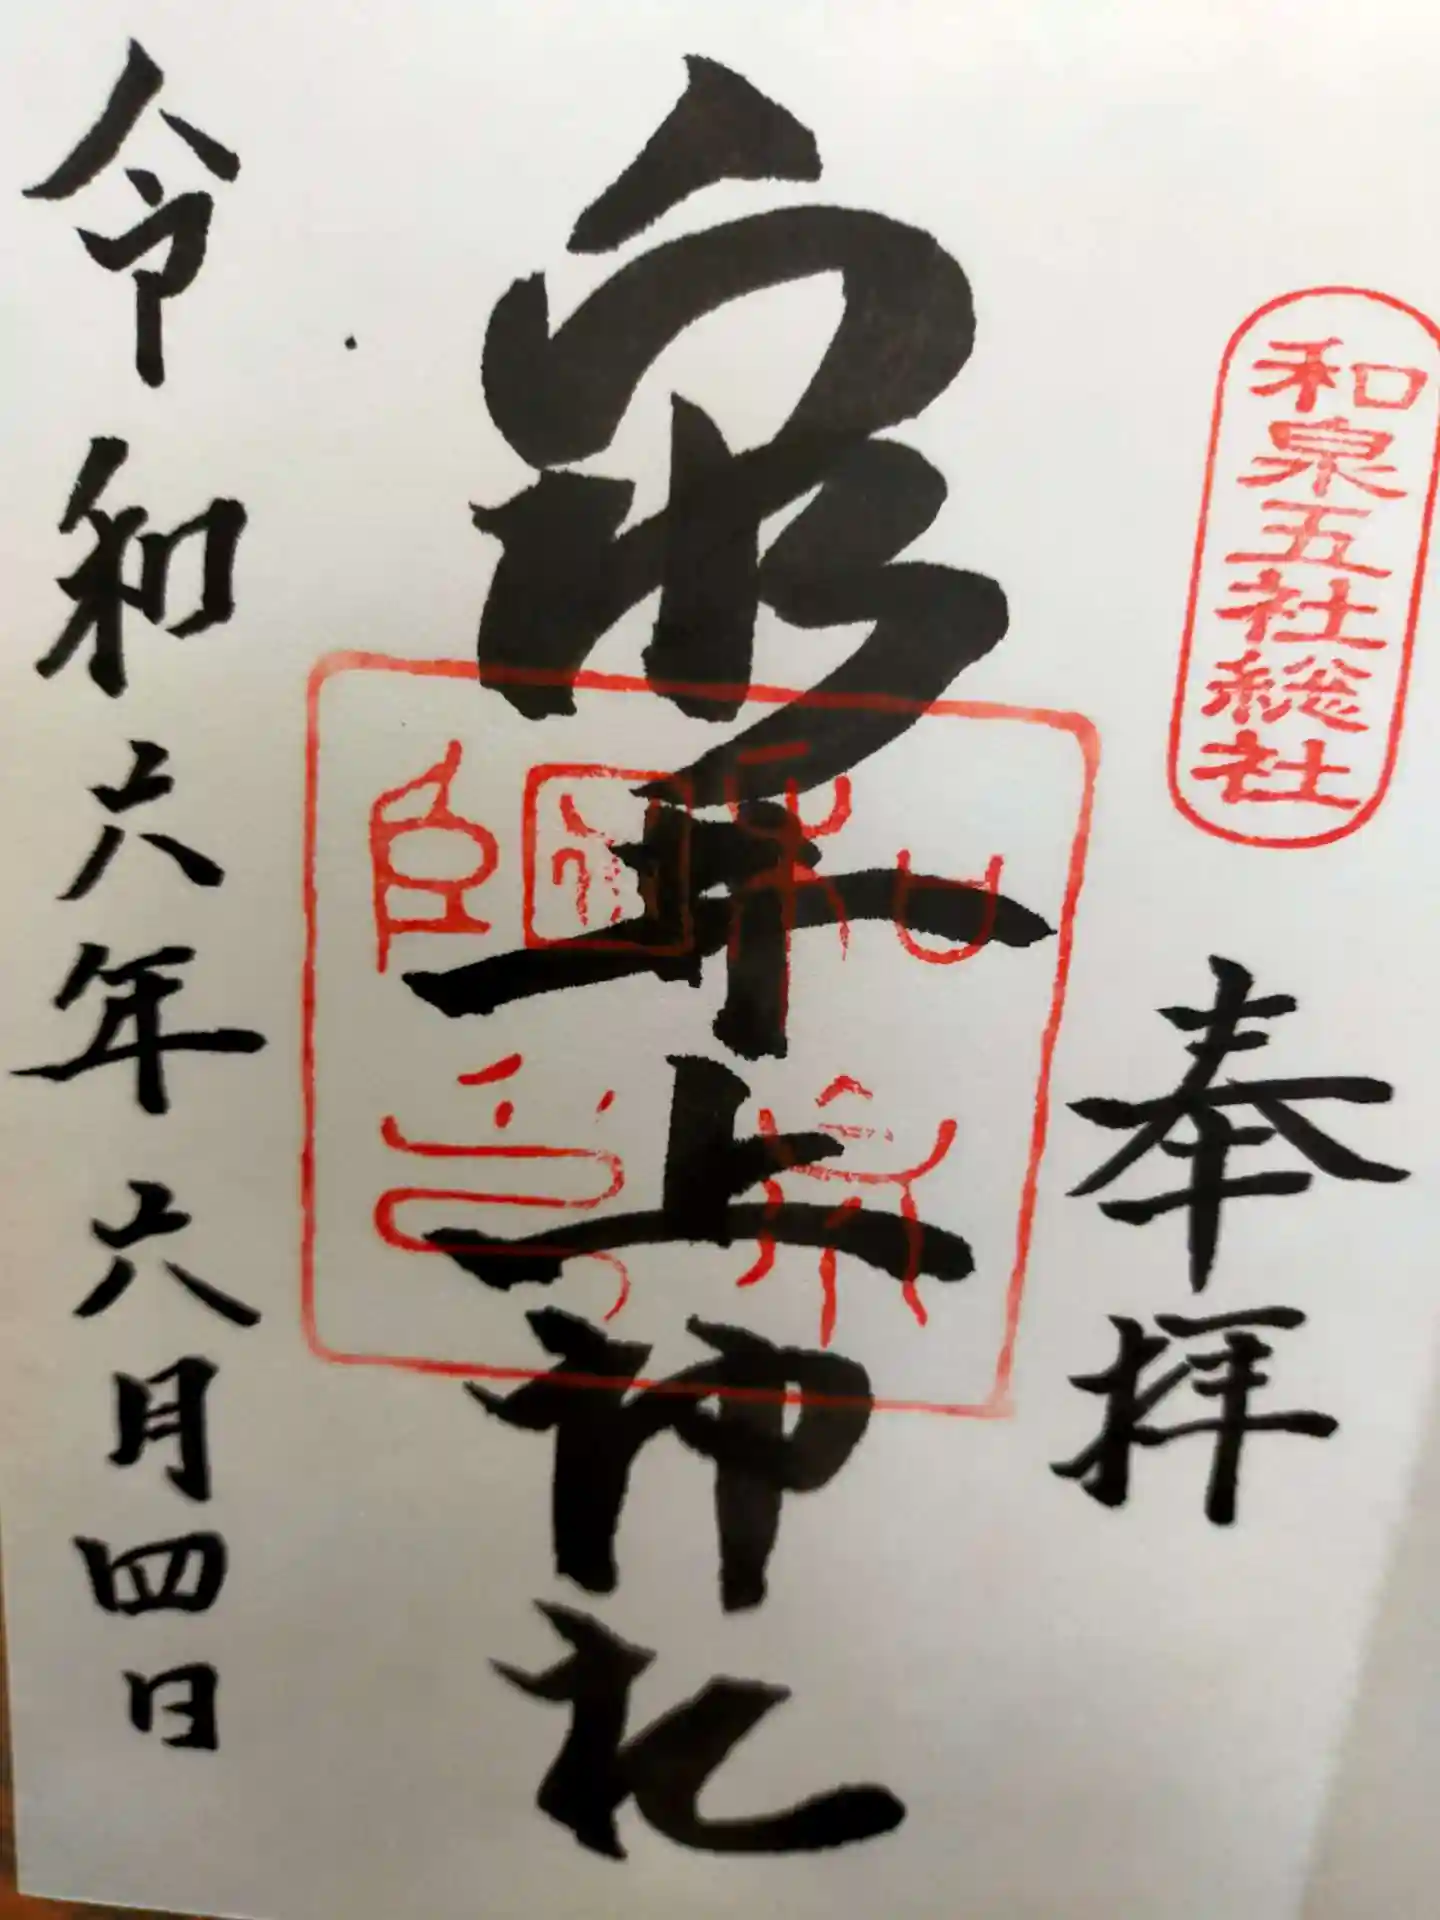 和泉五社総社
奉拝
泉井上神社
和泉
國師
令和六年六月四日